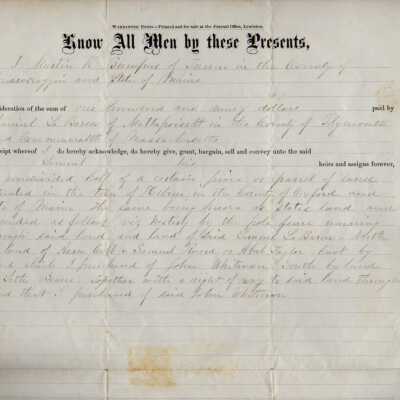 WARRANTEE DEED.—Printed and for sale at the Journal Office, Lewiston.
Know All Men by these Presents,
I Austin K. of in the County of
and State of Maine
consideration of the sum of one hundred and ninety dollars paid by
Samuel Le Baron of Mattapoisett in the County of Plymouth
and Commonwealth of Massachusetts
receipt whereof I do hereby acknowledge, do hereby give, grant, bargain, sell and convey unto the said
Samuel his heirs and assigns forever,
half of a certain piece or parcel of land
situated in the town of Hebron in the County of Oxford and
State of Maine the same being known as States land and
bounded as follows viz by the pole fence running
through said land and land of Said Samuel Le Baron North
land of & Samuel or Taylor East by
land which I purchased of John Whitman South by land
together with a right of way to said land through
land that I purchased of said John Whitman